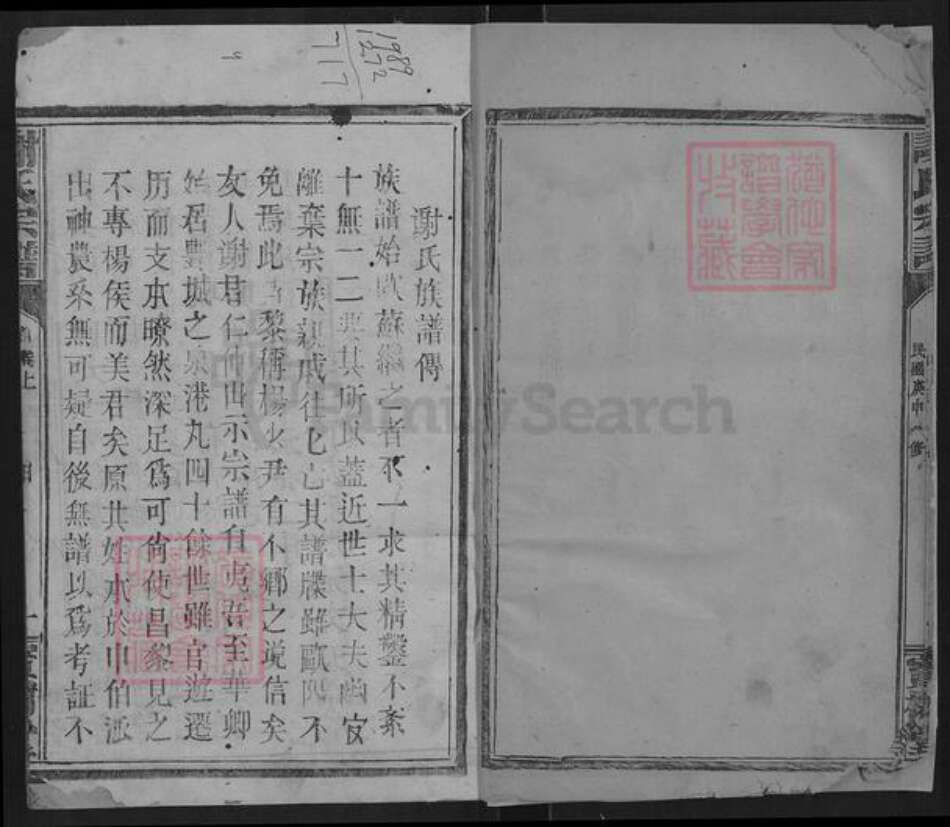 1989
1272
717
謝氏族譜傳
族譜始歐蘇繼之者不一求其精鑿不紊
十無一二其所以蓋近世士大夫幽宦
離棄宗族親戚往也已其譜牒雖歐陽不
免焉此昌黎稱楊少尹有不鄉之說信矣
友人謝君仁仲出示宗譜自夷吾至華卿
始居豐城之泉港凡四十餘世雖官遊遷
历而支本瞭然深足爲可尚使昌黎見之
不專楊侯而美君矣原其姓承於申伯
出神農系無可疑自後無譜以爲考証不
謝氏宗譜
民國庚申八修
寶樹
道德家譜學會收藏
FamilySearch